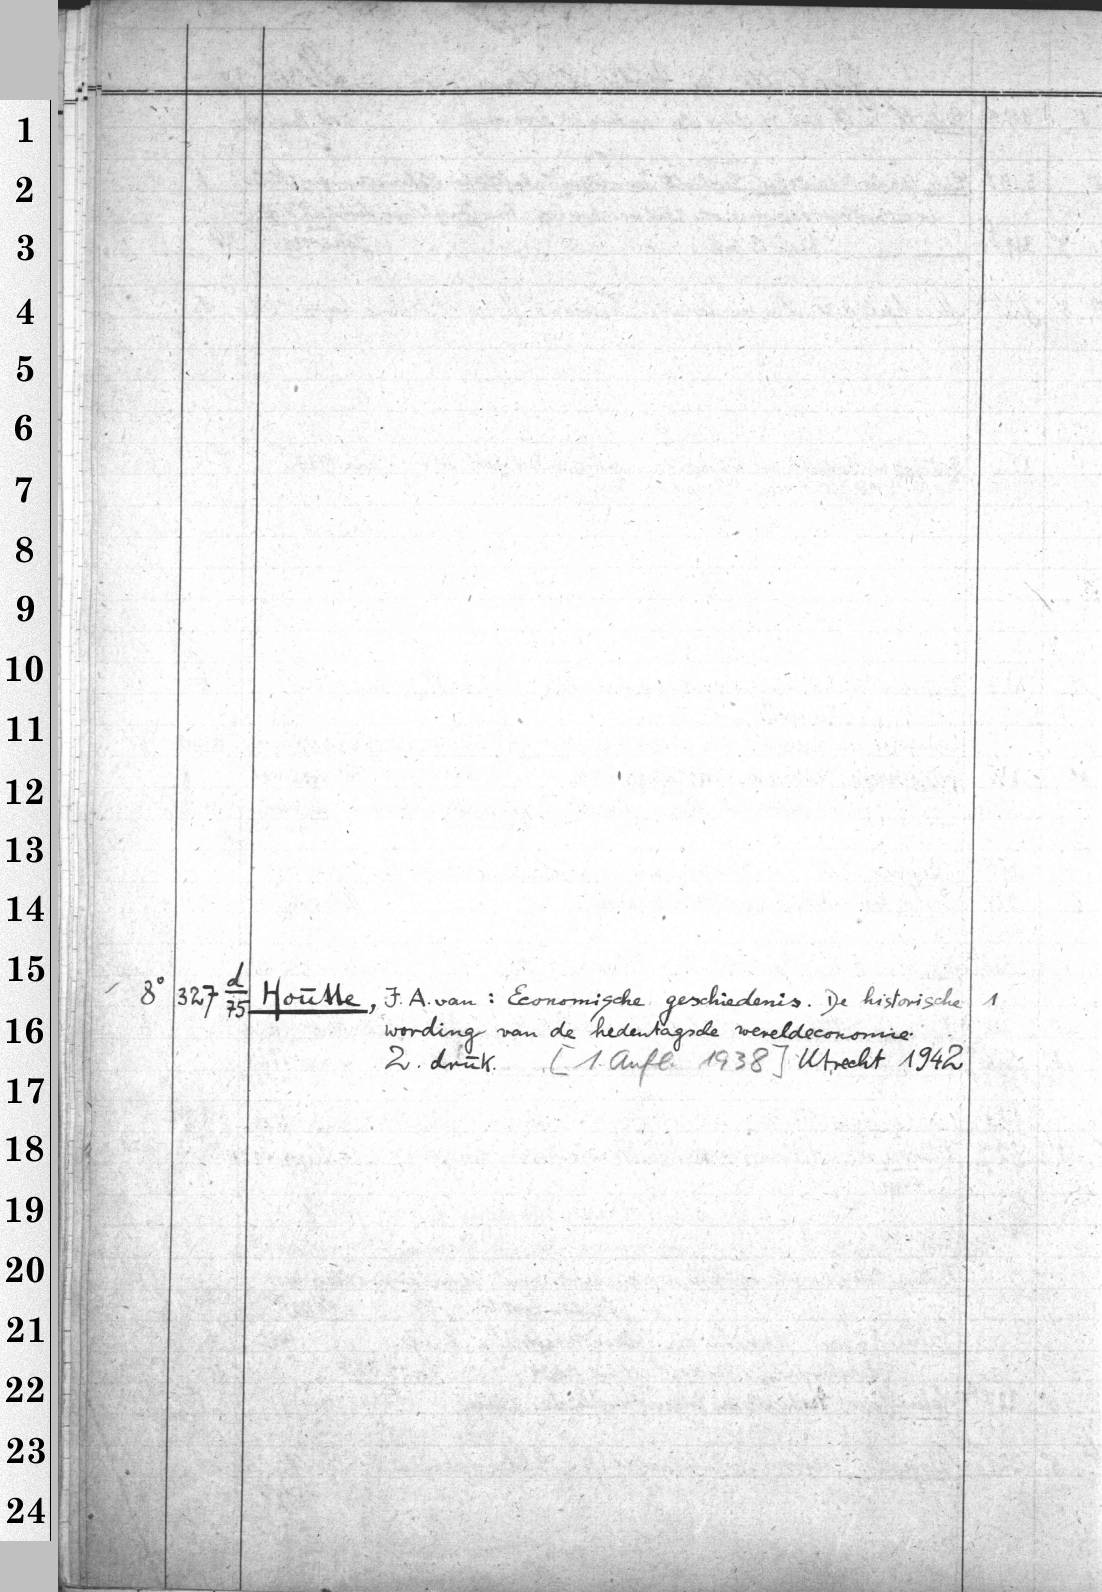 1
2
3
4
5
6
7
8
9
10
11
12
13
14
15
8° 327 d/75 Houtte, J. A. van : Economische geschiedenis. De historische 1
16
wording van de hedentagsde wereldeconomie.
2. druk. [1. Aufl. 1938] Utrecht 1942
17
18
19
20
21
22
23
24